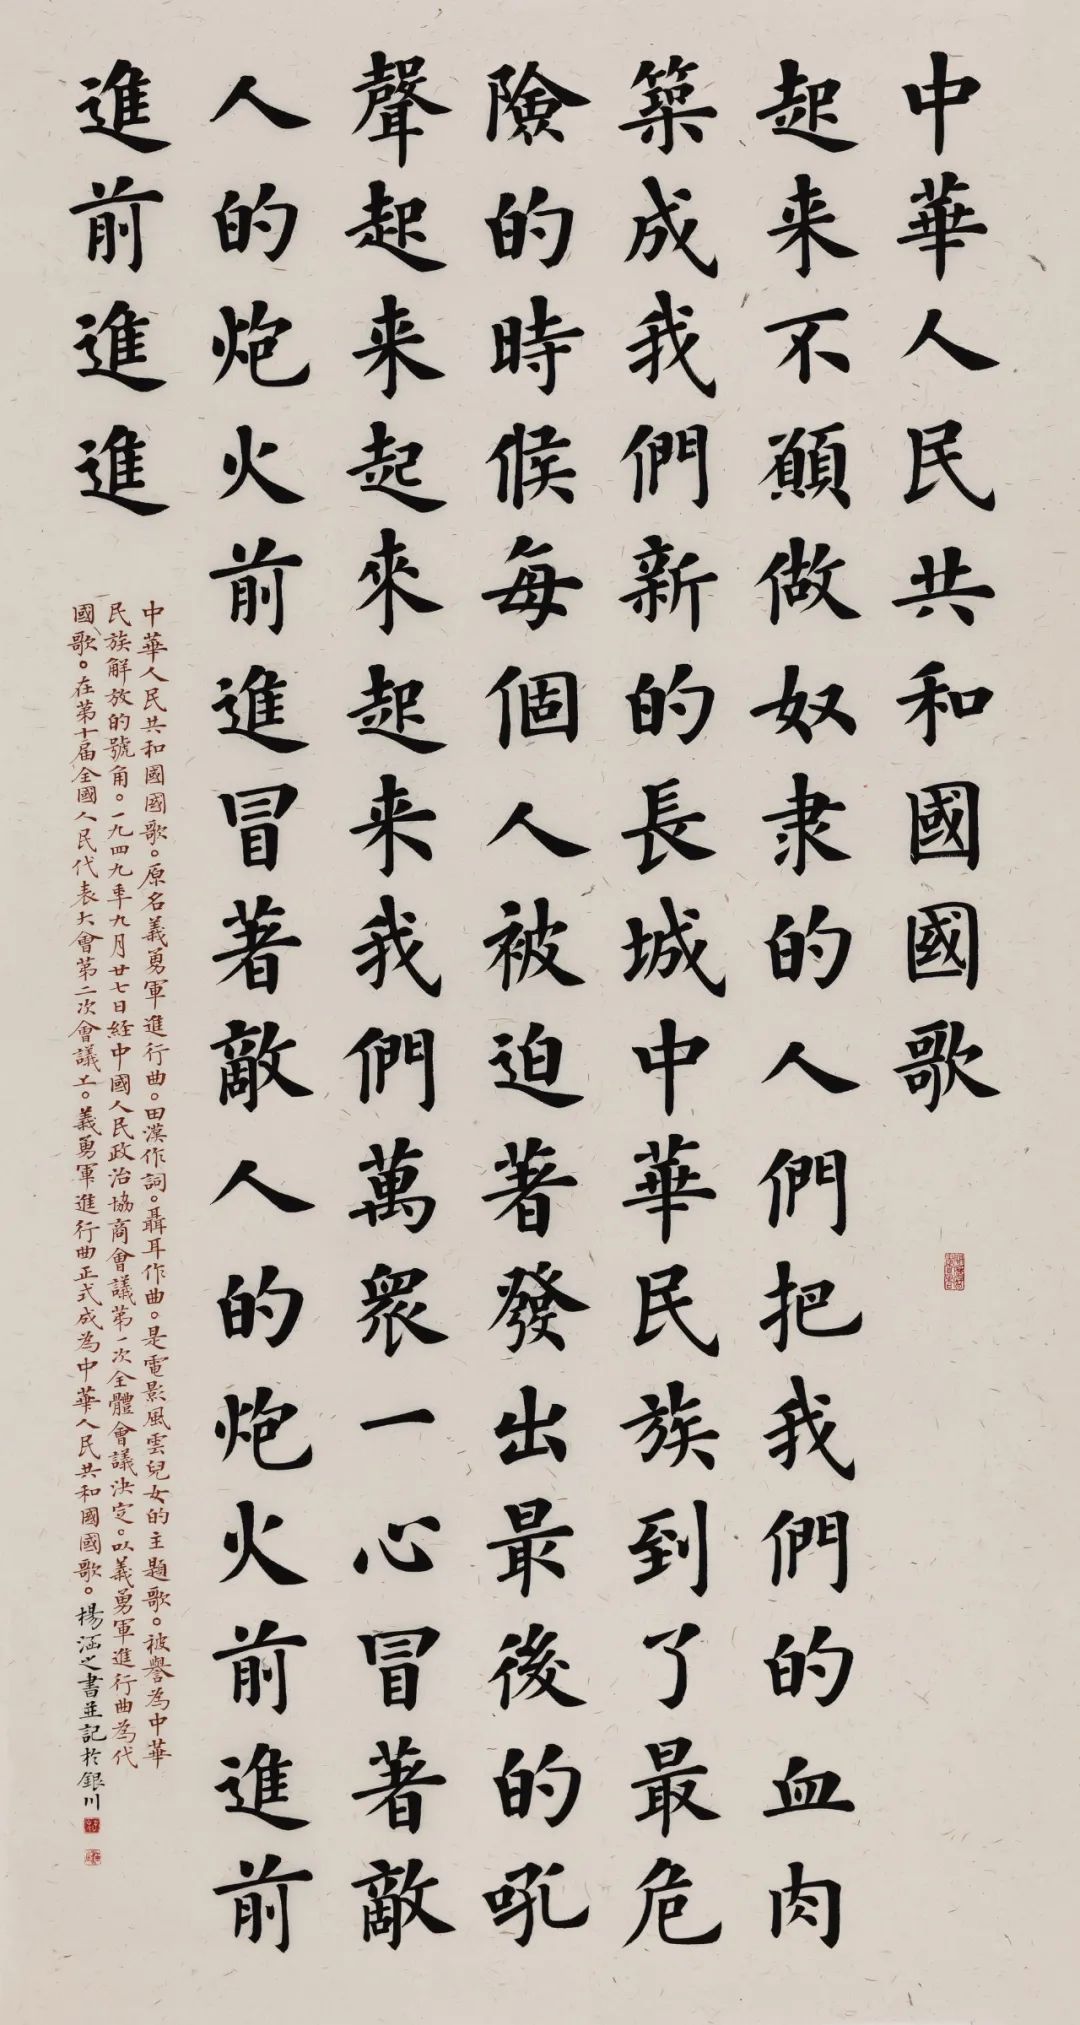 中華人民共和國國歌
起来不願做奴隶的人們把我們的血肉
築成我們新的長城中華民族到了最危
險的時候每個人被迫著發出最後的吼
聲起来起來起来我們萬衆一心冒著敵
人的炮火前進冒著敵人的炮火前進前
進前進進
中華人民共和國國歌。原名義勇軍進行曲。田漢作詞。聶耳作曲。是電影風雲兒女的主題歌。被譽為中華
民族解放的號角。一九四九年九月廿七日経中國人民政治協商會議第一次全體會議決定。以義勇軍進行曲為代
國歌。在第十届全國人民代表大會第二次會議上。義勇軍進行曲正式成為中華人民共和國國歌。楊涵之書並記於銀川